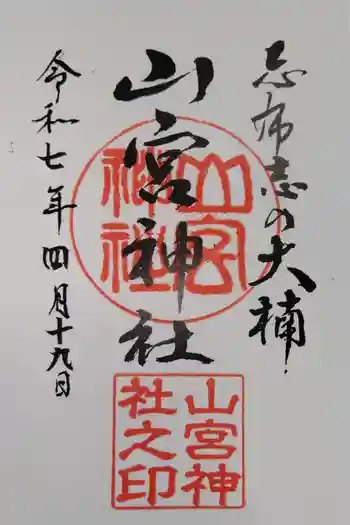 志布志の大楠
山宮神社
令和七年四月十九日
山宮神社
山宮神
社之印